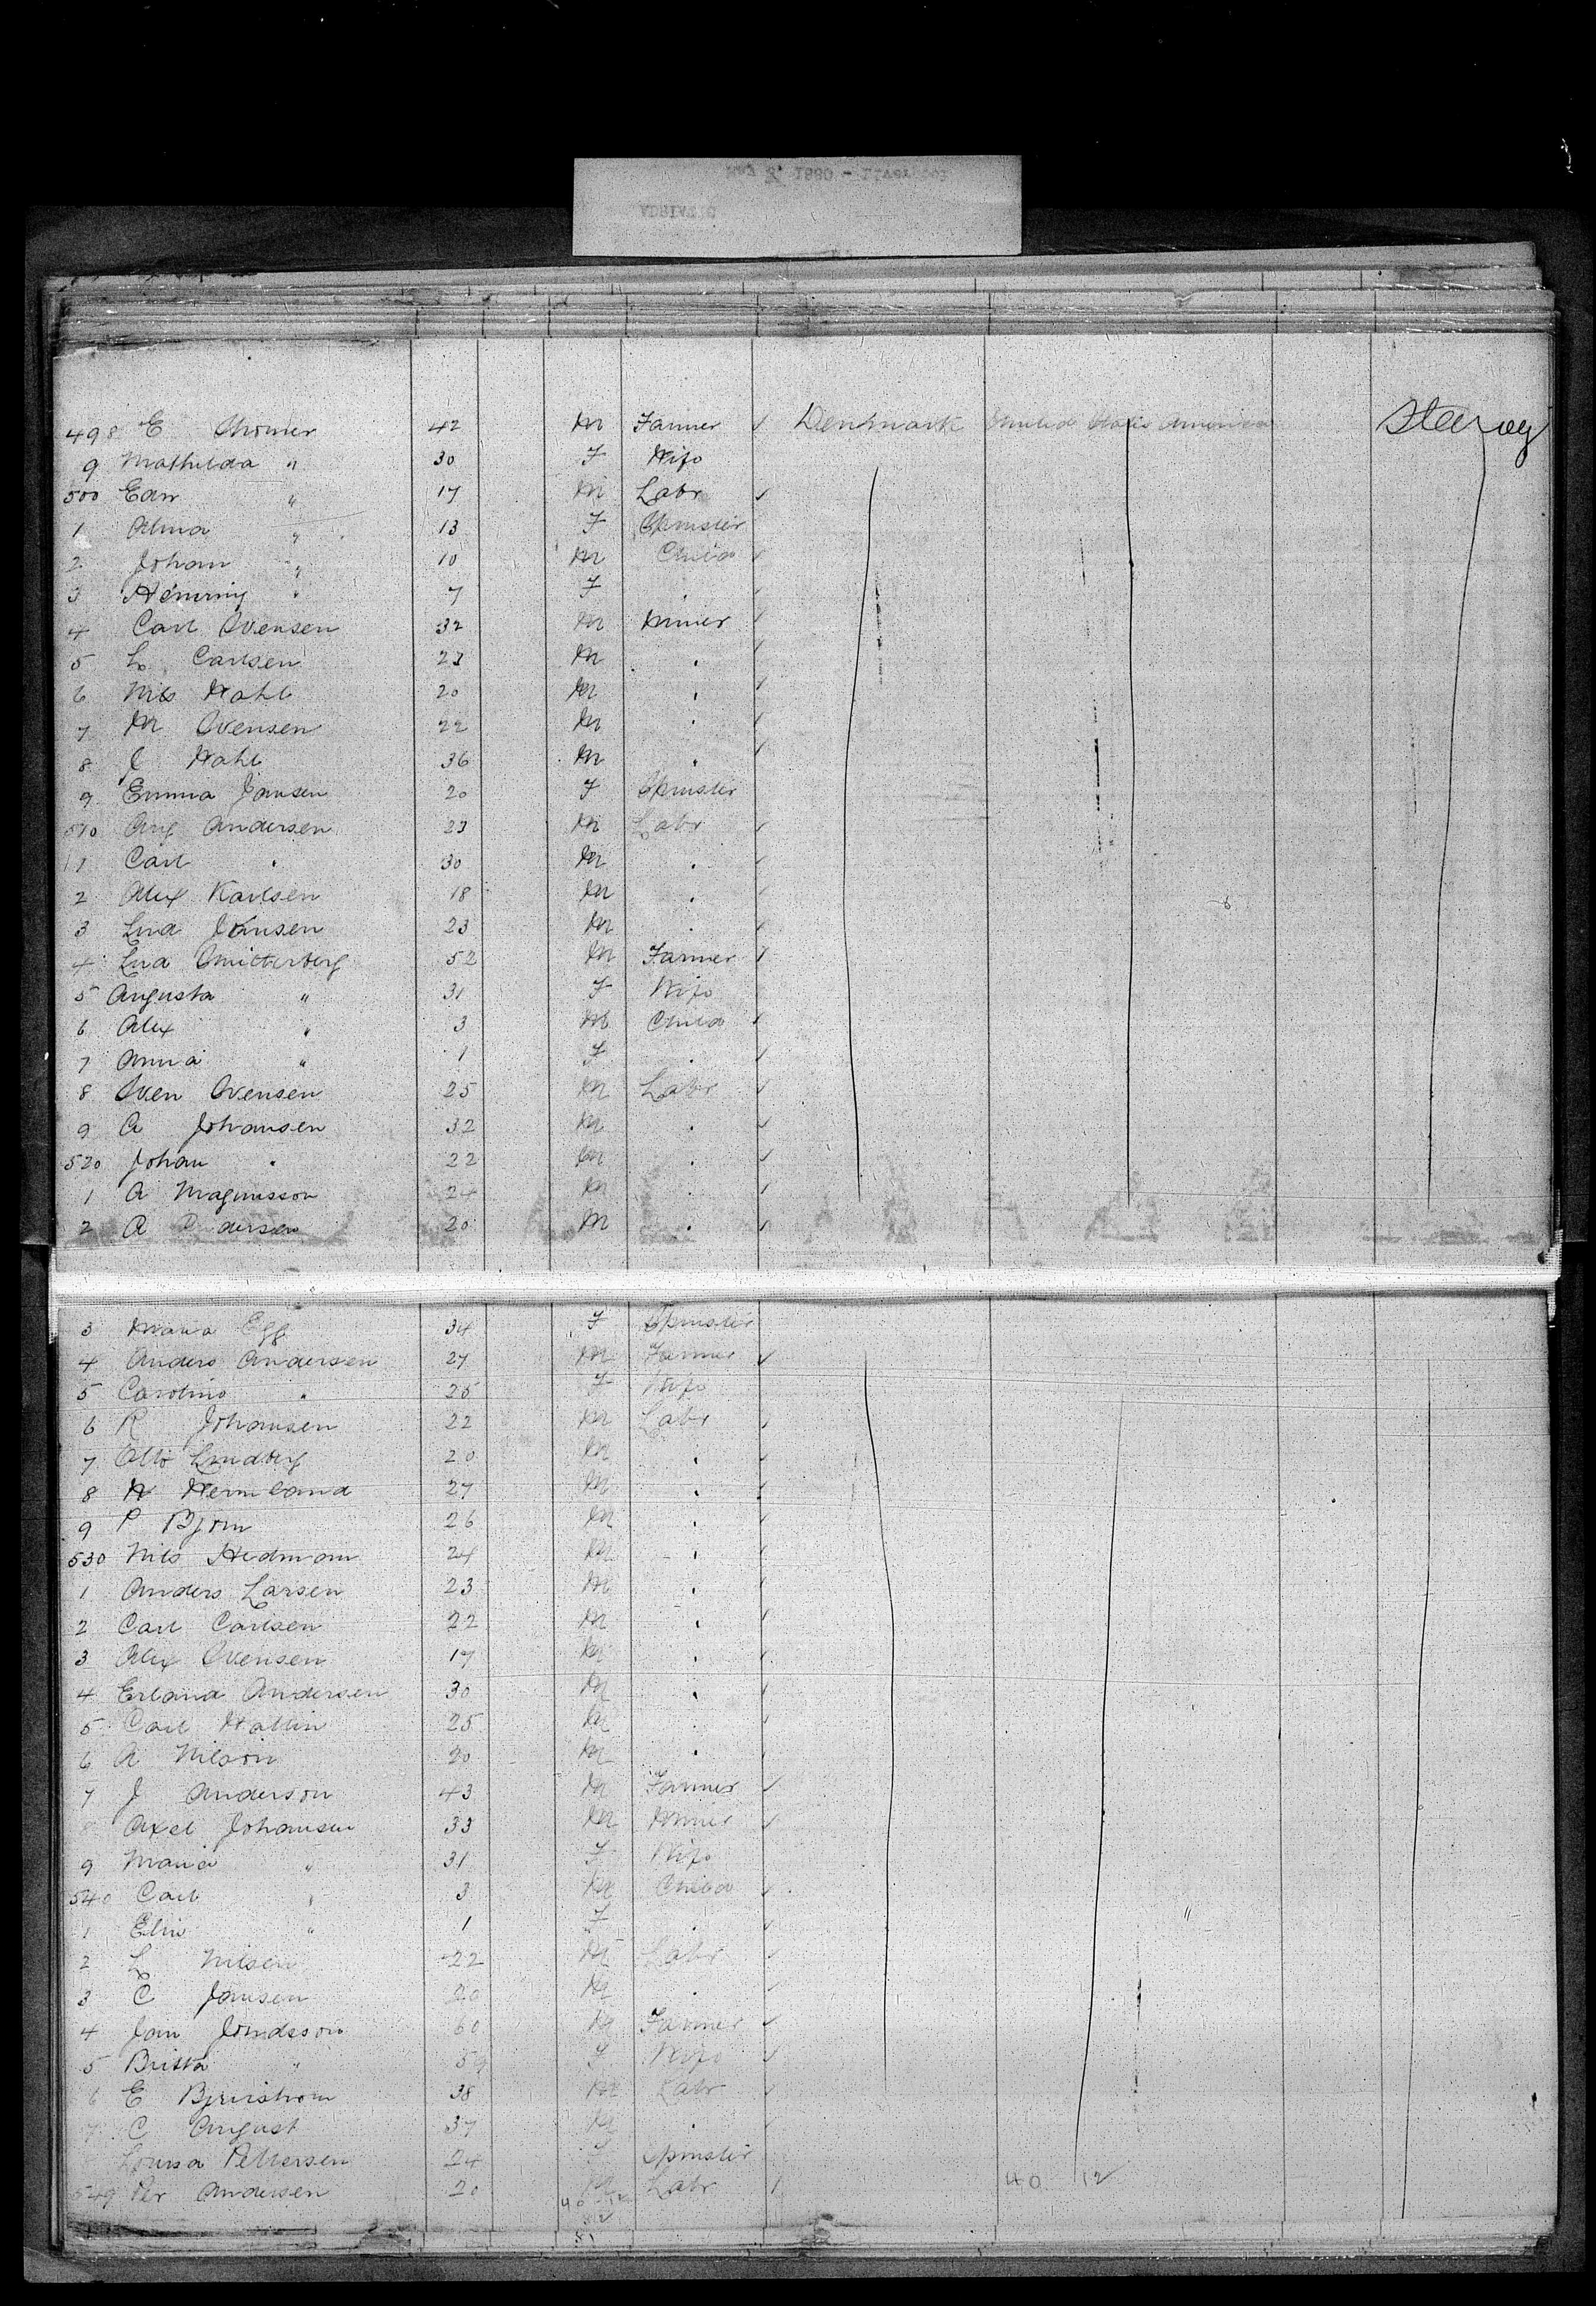 498 E Thorner 42 M Farmer Denmark United States America Steerag
9 Mathilda " 30 F Wife
500 Edw " 17 M Labr
1 Alma " 13 F Spinster
2 Johan " 10 M Child
3 Hemming " 7 F "
4 Carl Svensen 32 M Miner
5 L Carlsen 23 M "
6 Nils Wahl 20 M "
7 M Svensen 22 M "
8 J Wahl 36 M "
9 Emma Jansen 20 F Spinster
510 Aug Andersen 23 M Labr
11 Carl " 30 M "
2 Alex Karlsen 18 M "
3 Lud Jansen 23 M "
4 Lud 52 M Farmer
5 Augusta " 31 F Wife
6 Alex " 3 M Child
7 Anna " 1 F "
8 Sven Svensen 25 M Labr
9 A Johansen 32 M "
520 Johan " 22 M "
1 A Magnusson 24 M "
2 A Andersen 20 M "
3 Maria Egg 34 F Spinster
4 Anders Andersen 27 M Farmer
5 Carolina " 25 F Wife
6 R Johansen 22 M Labr
7 Otto Lindberg 20 M "
8 H Hermland 27 M "
9 P Bjorn 26 M "
530 Nils Hedmam 24 M "
1 Anders Larsen 23 M "
2 Carl Carlsen 22 M "
3 Alex Svensen 17 M "
4 Erland Andersen 30 M "
5 Carl Wallin 25 M "
6 A Nilson 20 M "
7 J Anderson 43 M Farmer
8 Axel Johansen 33 M Miner
9 Maria " 31 F Wife
540 Carl " 3 M Child
1 Elin " 1 F "
2 L Nilsen 22 M Labr
3 C Jansen 20 M "
4 Jan 60 M Farmer
5 Britta " 59 F Wife
6 E Bjurstrom 38 M Labr
7 C August 37 M "
8 Lovisa Pettersen 24 F Spinster
549 Per Andersen 20 M Labr 40 12
40 12